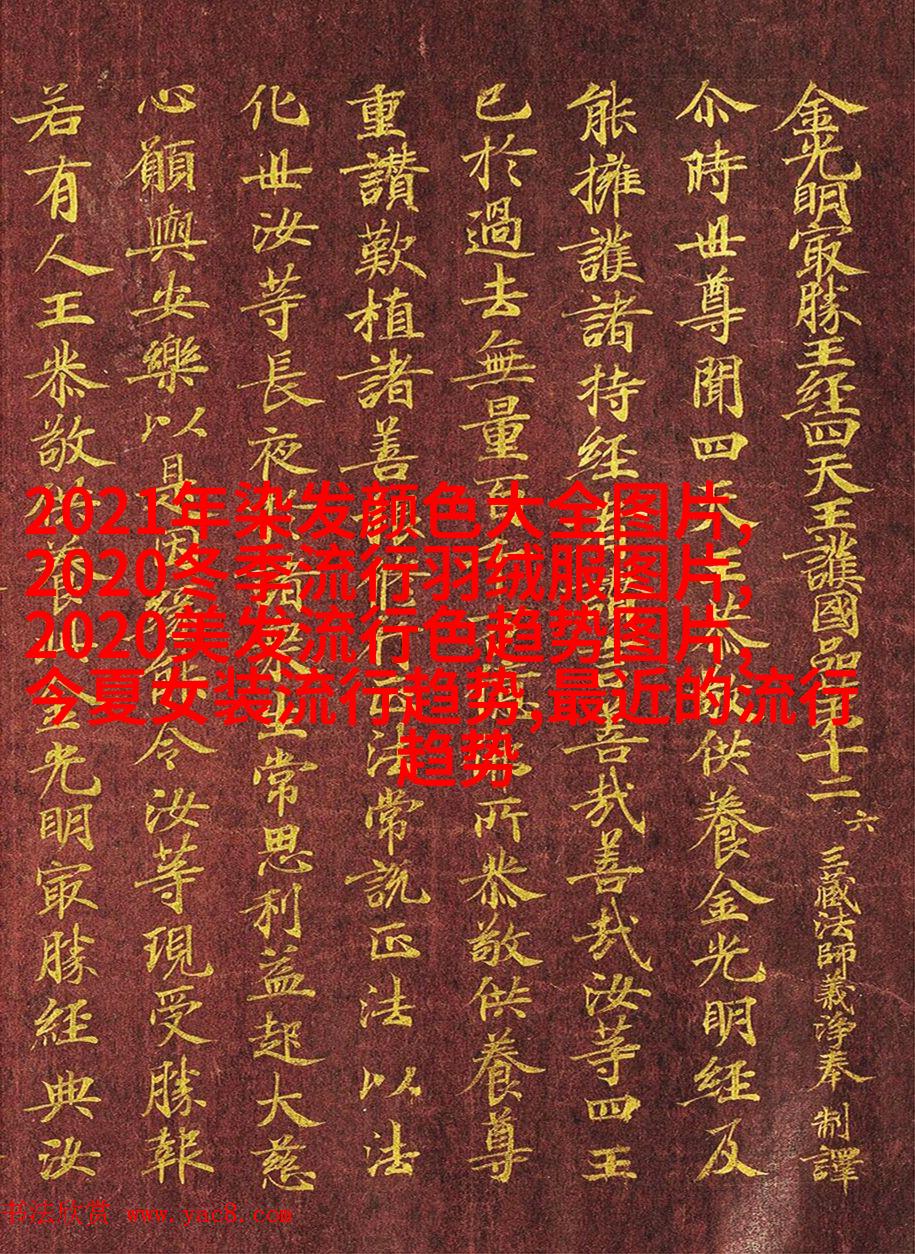 金光明冣勝王經四天王護國品第十二 六 三藏法師義淨奉 制譯
尒時世尊聞四天王恭 供養金光明經及
能擁護諸持經 善哉善哉汝等四王
已於過去無量百 所恭敬供養尊
重讚歎植諸善 行 法常說正法以法
化世汝等長夜 生常思利益起大慈
心願與安樂以是因 令汝等現受勝報
若有人王恭敬 金光明冣勝經典汝
2021年染发颜色大全图片,
2020冬季流行羽绒服图片,
2020美发流行色趋势图片,
今夏女装流行趋势,最近的流行
趋势
书法欣赏 www.yac8.com